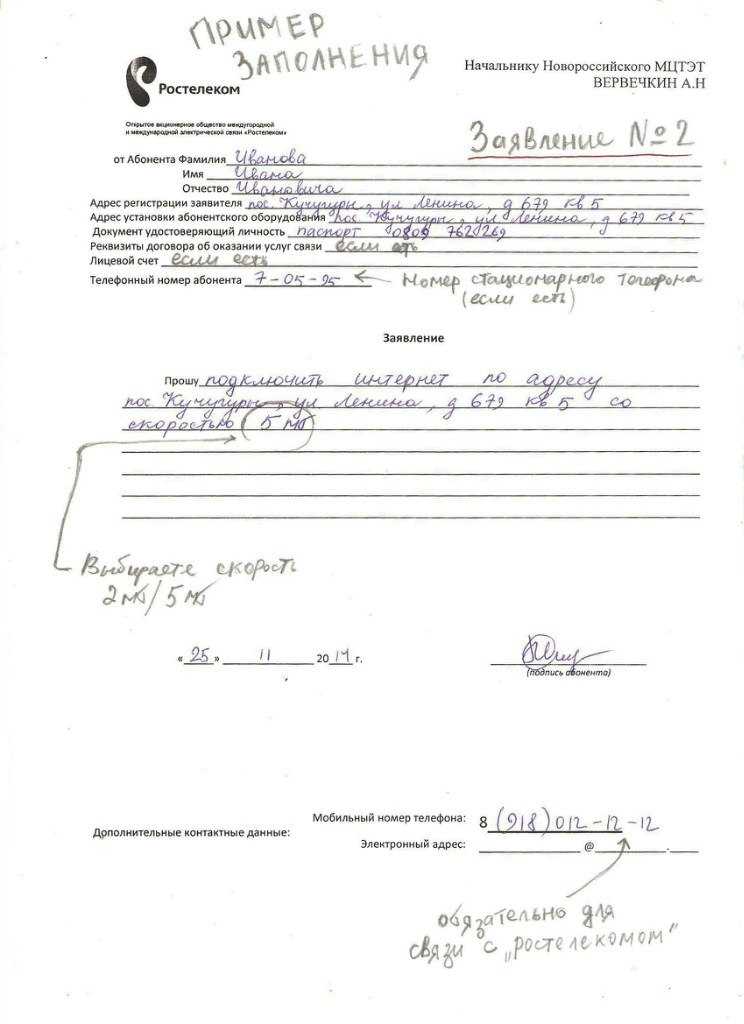 ПРИМЕР
ЗАПОЛНЕНИЯ
Ростелеком
Открытое акционерное общество междугородной
и международной электрической связи «Ростелеком»
Начальнику Новороссийского МЦТЭТ
ВЕРВЕЧКИН А.Н
Заявление №2
от Абонента Фамилия Иванова
Имя Ивана
Отчество Ивановича
Адрес регистрации заявителя пос. Кучугуры, ул Ленина, д 679 кв 5
Адрес установки абонентского оборудования пос. Кучугуры, ул Ленина, д 679 кв 5
Документ удостоверяющий личность паспорт 0809 762269
Реквизиты договора об оказании услуг связи если есть
Лицевой счет если есть
Телефонный номер абонента 7-05-95 ← Номер стационарного телефона
(если есть)
Заявление
Прошу подключить интернет по адресу
пос. Кучугуры, ул Ленина, д 679 кв 5 со
скоростью 5 мб
Выбираете скорость
2 мб/5 мб
«25» 11 2014 г.
(подпись абонента)
Дополнительные контактные данные:
Мобильный номер телефона: 8 (918) 012-12-12
Электронный адрес: @ .
обязательно для
связи с „ростелекомом"